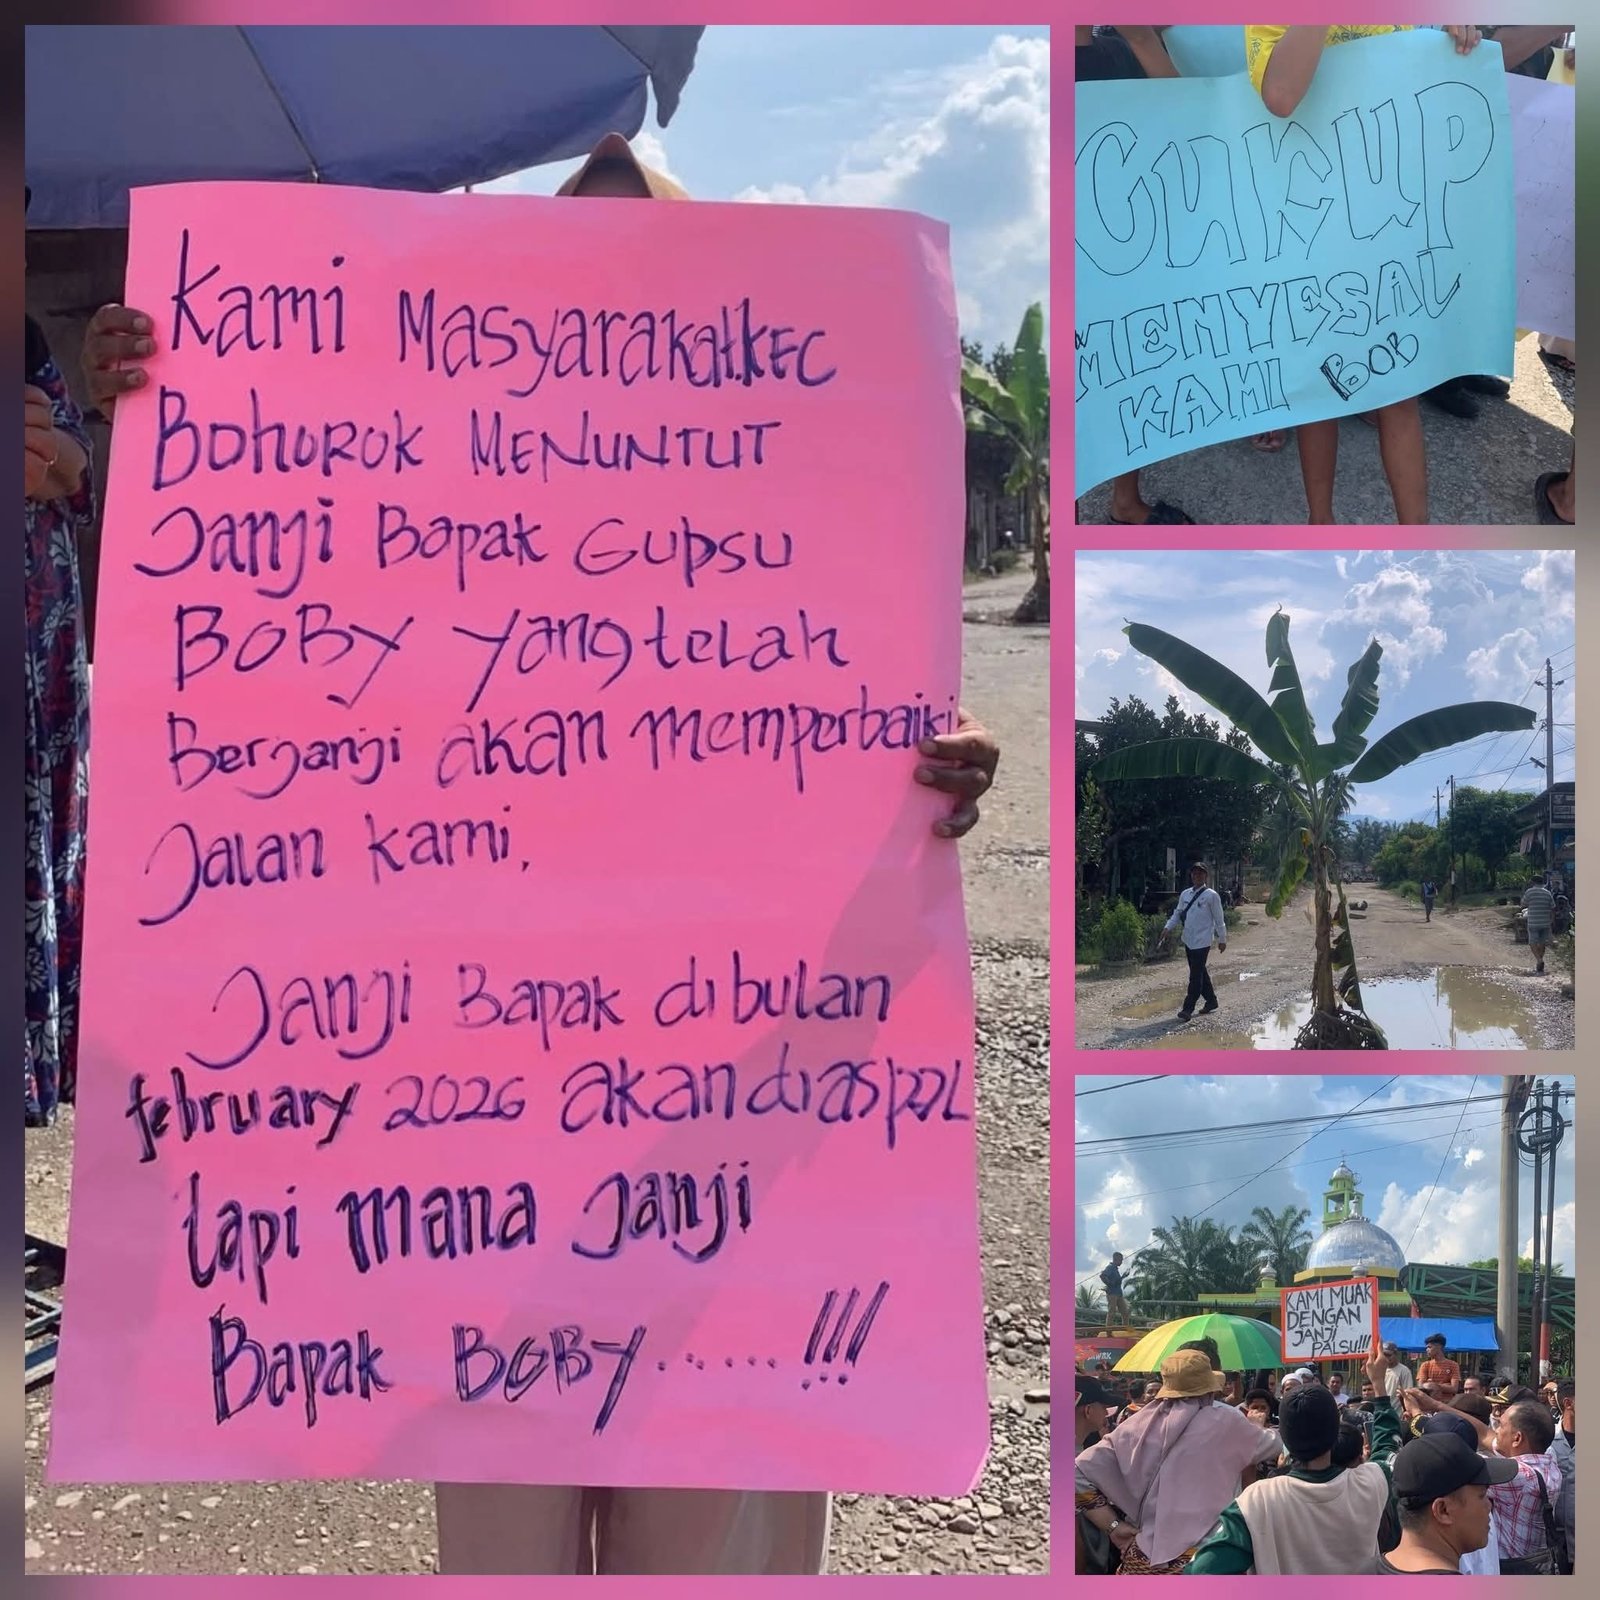 Kami Masyarakat.KEC
Bohorok MENUNTUT
Janji Bapak Gubsu
BOBY yang telah
Berjanji akan memperbaiki
Jalan kami,
Janji Bapak dibulan
february 2026 akan diaspal
tapi mana Janji
Bapak BOBY...... !!!
CUKUP
MENYESAL
KAMI BOB
KAMI MUAK
DENGAN
JANJI
PALSU!!!